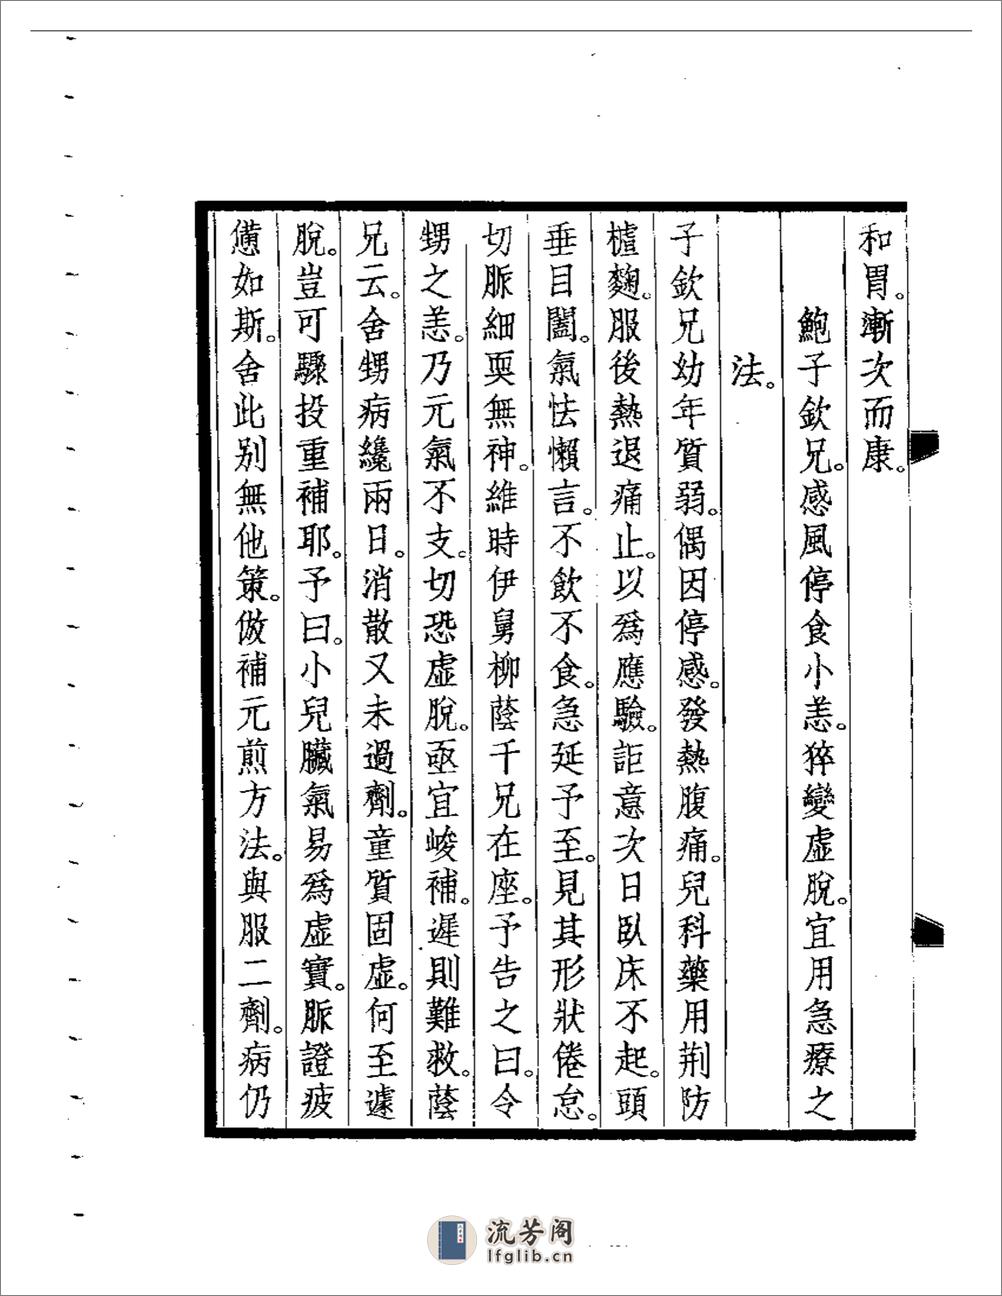 和胃。漸次而康。
鮑子欽兄。感風停食小恙。猝變虛脫。宜用急療之
法。
子欽兄幼年質弱。偶因停感。發熱腹痛。兒科藥用荆防
樝麴。服後熱退痛止。以爲應驗。詎意次日臥床不起。頭
垂目闔。氣怯懶言。不飲不食。急延予至。見其形狀倦怠。
切脈細耎無神。維時伊舅柳蔭千兄在座。予告之曰。令
甥之恙。乃元氣不支。切恐虛脫。亟宜峻補。遲則難救。蔭
兄云。舍甥病纔兩日。消散又未過劑。童質固虛。何至遽
脫。豈可驟投重補耶。予曰。小兒臟氣易爲虛實。脈證疲
憊如斯。舍此別無他策。倣補元煎方法。與服二劑。病仍
流芳阁
lfglib.cn